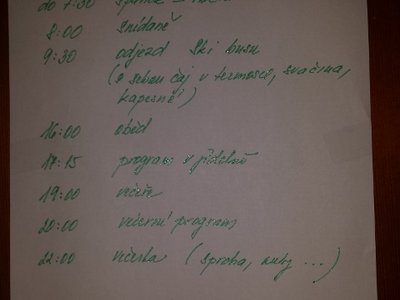 do 7:30
8:00 snídaně
9:30 odjezd Ski busu
(s sebou čaj v termosce, svačina,
kapesné!)
16:00 oběd
17:15 program v jídelně
19:00 večeře
20:00 večerní program
22:00 večerka ( sprcha, ...)